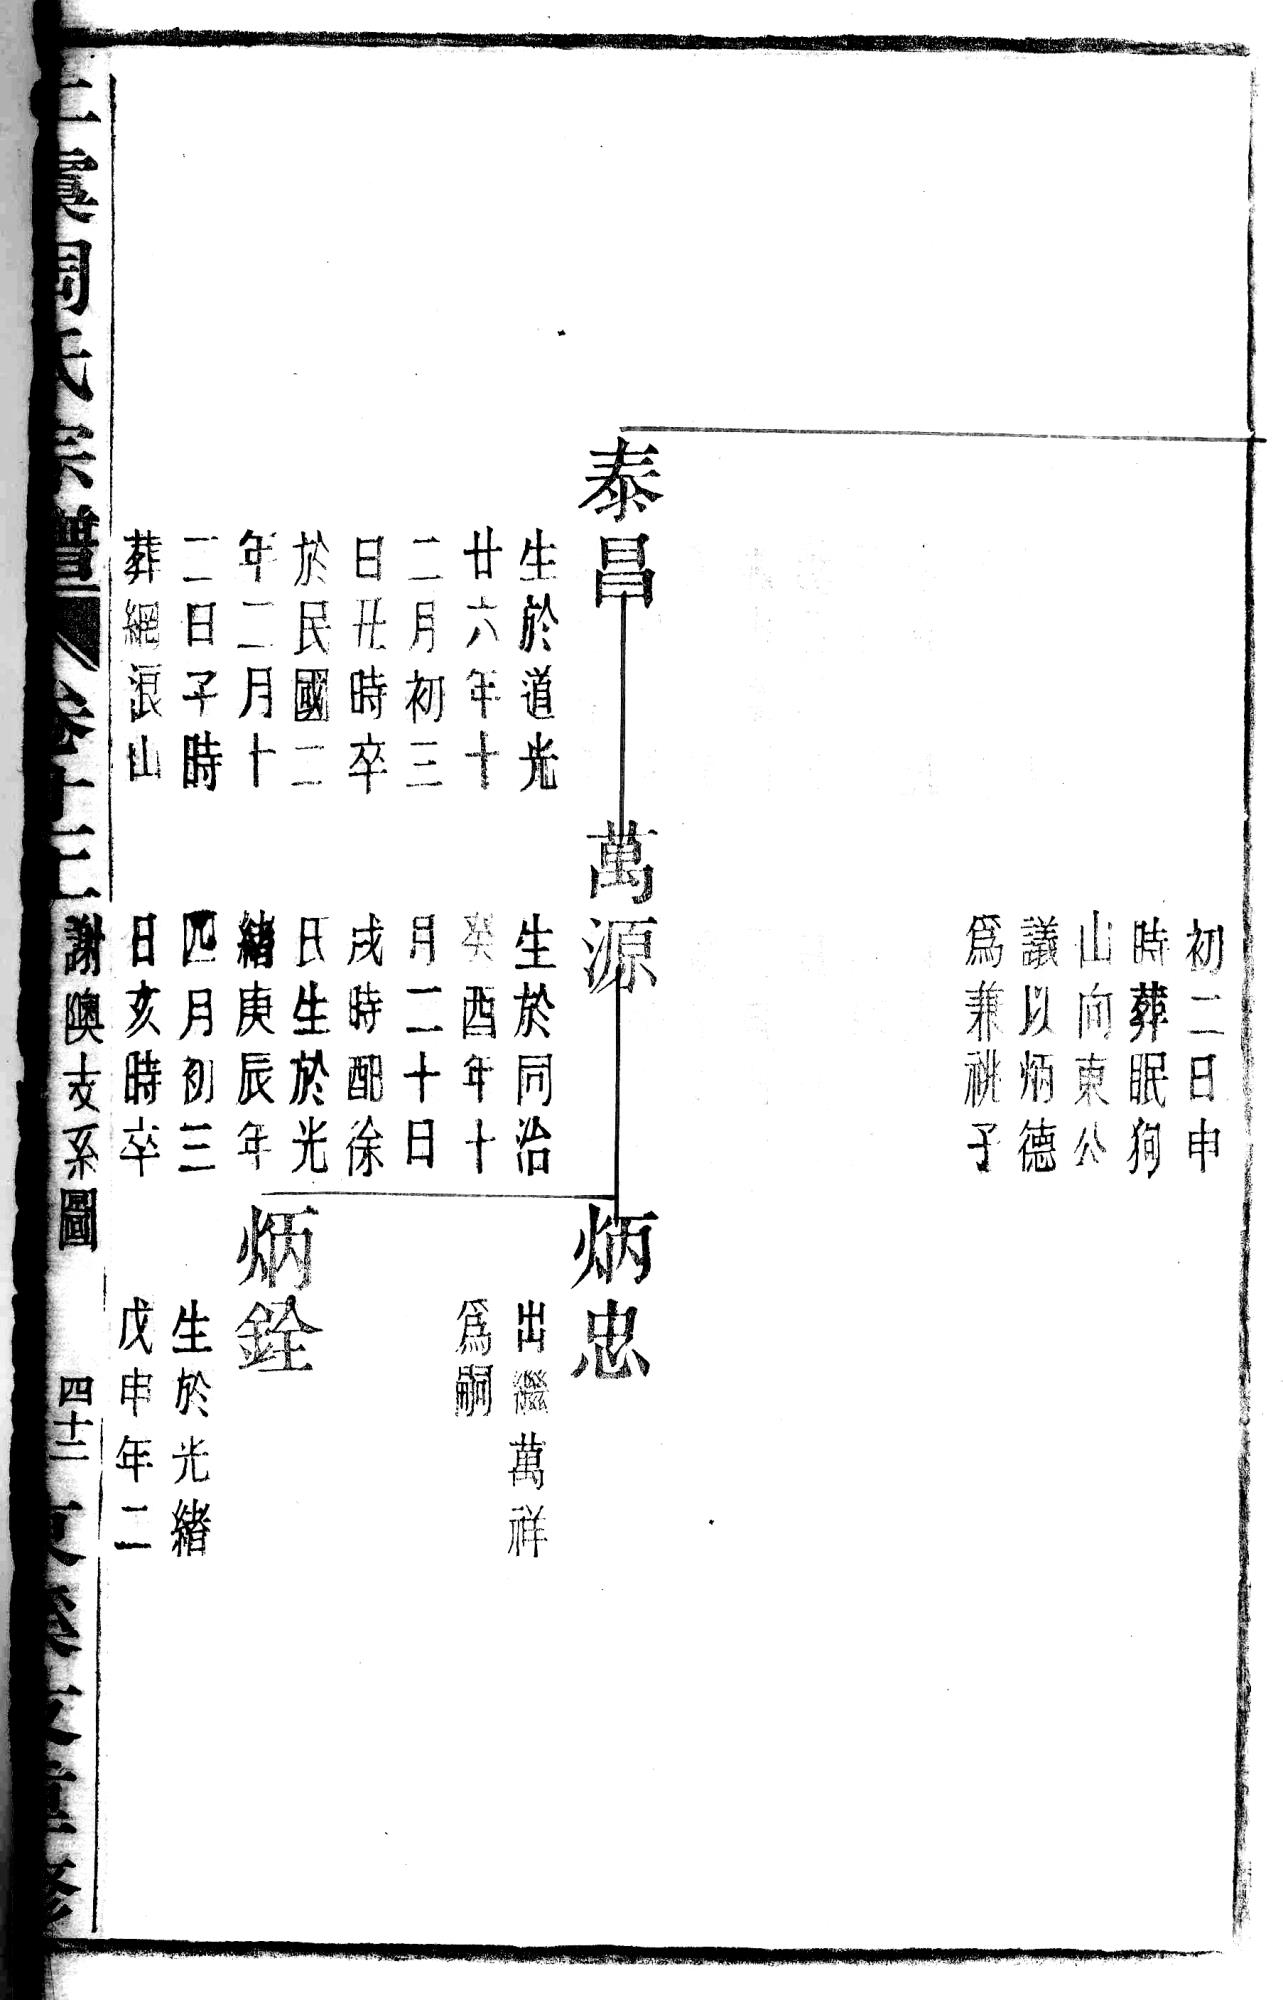 初二日申
時葬眠狗
山向東公
議以炳德
爲兼祧子
泰昌
生於道光
廿六年十
二月初三
日丑時卒
於民國二
年二月十
二日子時
葬網浪山
萬源
生於同治
癸酉年十
月二十日
戌時配徐
氏生於光
緒庚辰年
四月初三
日亥時卒
炳忠
出繼萬祥
爲嗣
炳銓
生於光緒
戊申年二
上虞周氏宗譜
卷十三
謝隩支系圖
四十二